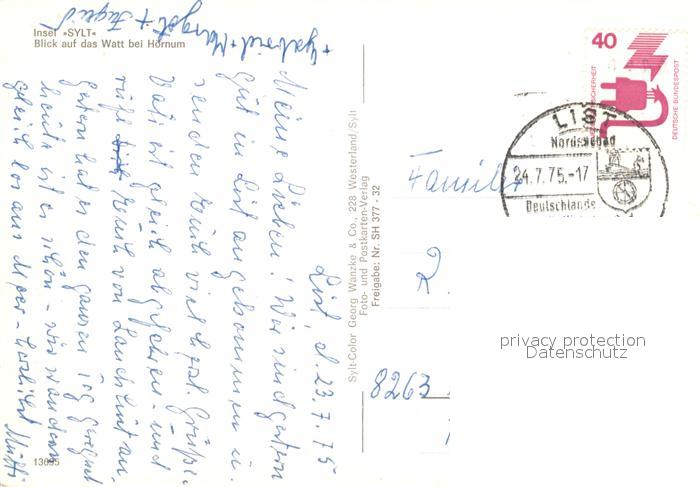 Insel »SYLT«
Blick auf das Watt bei Hörnum
List, d. 23.7.75
Meine Lieben! Wir sind gestern
gut in List angekommen u.
senden Euch viele herzl. Grüße.
Vati ist gleich abgefahren - und
ruft Euch von Landshut an.
Gestern hat es den ganzen Tag geregnet
heute ist es schön - wir wandern
gleich los ans Meer - herzlichst Mutti
+ Gabriel + Margot + Ingrid
13695
Sylt-Color Georg Wanzke & Co., 228 Westerland/Sylt
Foto- und Postkarten-Verlag
Freigabe: Nr. SH 377 - 32
40
DEUTSCHE BUNDESPOST
LIST
Nordseebad
24.7.75.-17
Deutschlands
Familie
R.
8263
privacy protection
Datenschutz